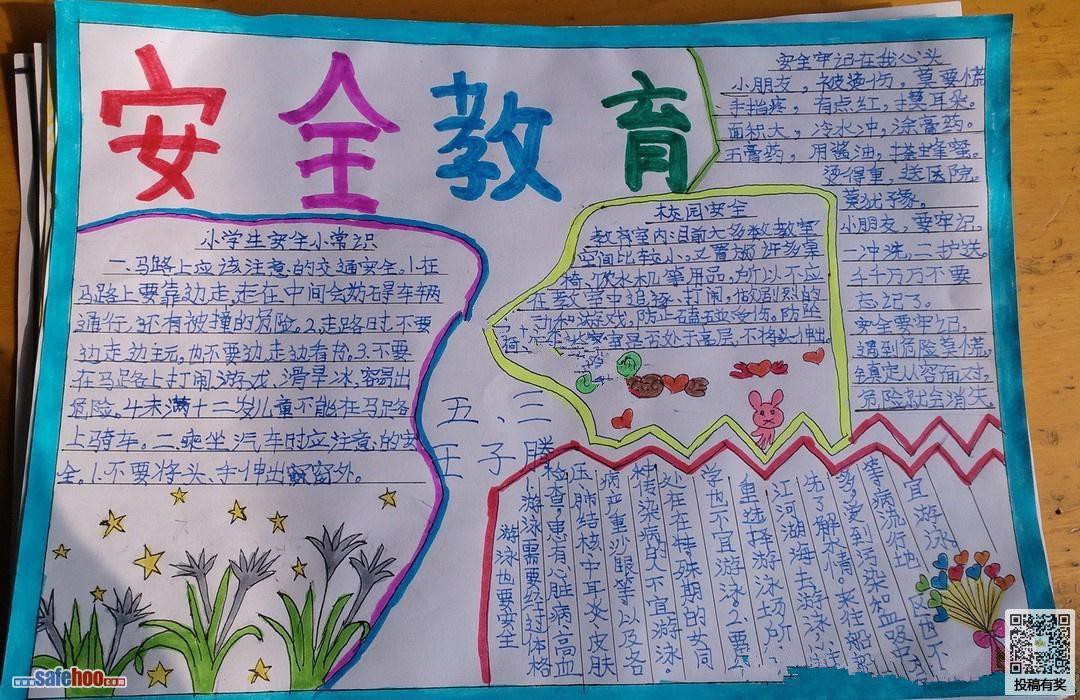 安全教育
小学生安全小常识
一.马路上应该注意的交通安全.1.在
马路上要靠边走,走在中间会妨碍车辆
通行,还有被撞的危险。2.走路时不要
边走边玩,也不要边走边看书.3.不要
在马路上打闹、游戏、滑旱冰,容易出
危险。4.未满十二岁儿童不能在马路
上骑车。二.乘坐汽车时应注意的安
全.1.不要将头、手伸出窗外。
安全牢记在我心头
小朋友,被烫伤,莫要慌
手指疼,有点红,摸耳朵。
面积大,冷水冲,涂膏药。
无膏药,用酱油,搽蜂蜜。
烫得重,送医院。
莫犹豫。
小朋友,要牢记。
一冲洗,二护送。
千千万万不要
忘记了。
安全要牢记,
遇到危险莫慌,
镇定从容面对,
危险就会消失。
校园安全
教室内:目前大多数教室
空间比较小,又置放许多桌
椅、饮水机等用品,所以不应
在教室中追逐、打闹,做剧烈的
动和游戏,防止磕碰受伤。防坠
室是否处于高层,不将头伸出
五、三
王子腾
游泳也要安全
1.游泳需要经过体格
检查,患有心脏病、高血
压、肺结核、中耳炎、皮肤
病、严重沙眼等以及各
种传染病的人不宜游泳
处在在特殊期的女同
学也不宜游泳。2.要
重选择游泳场所,
江河湖海去游泳,
先了解水情。来往船
多,受到污染和血吸虫
等病流行地区也不
宜游泳。
www.safehoo.com
投稿有奖